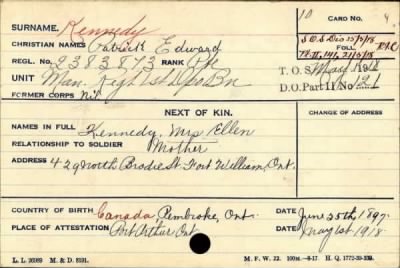 10 CARD NO. 4
SURNAME. Kennedy
CHRISTIAN NAMES Patrick Edward
REGL. NO. 2383873 RANK Pte
UNIT Man. Regt 1st Dpo Bn
FORMER CORPS Nil
S.O.S. Dis 15/5/18
FOLL. R.I.C.
T.O.S. May 1918
D.O. Part II No 121
NEXT OF KIN.
CHANGE OF ADDRESS
NAMES IN FULL Kennedy, Mrs Ellen
RELATIONSHIP TO SOLDIER Mother
ADDRESS 429 North Brodie St. Fort William, Ont.
COUNTRY OF BIRTH Canada, Pembroke, Ont. DATE June 25th 1897.
PLACE OF ATTESTATION Port Arthur Ont DATE May 1st 1918
L. L. M. & D. M. F. W. 22. H. Q.